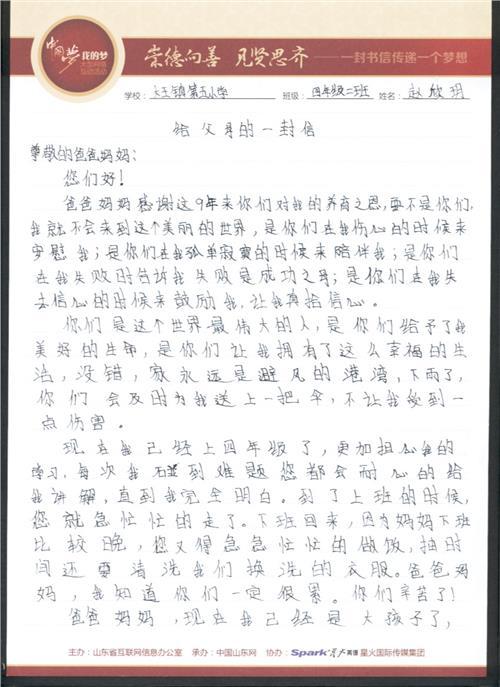 中国梦 我的梦
大型网络
互动活动
崇德向善 见贤思齐——一封书信传递一个梦想
学校：大王镇第五小学 班级：四年级二班 姓名：赵欣玥
给父母的一封信
尊敬的爸爸妈妈：
您们好！
爸爸妈妈感谢这9年来你们对我的养育之恩，要不是你们，
我就不会来到这个美丽的世界，是你们在我伤心的时候来
安慰我；是你们在我孤单寂寞的时候来陪伴我；是你们
在我失败时告诉我失败是成功之母；是你们在我失
去信心的时候来鼓励我，让我再拾信心。
你们是这个世界最伟大的人，是你们给予了我
美好的生命，是你们让我拥有了这么幸福的生
活，没错，家永远是避风的港湾，下雨了，
你们会及时为我送上一把伞，不让我受到一
点伤害。
现在我已经上四年级了，更加担心我的
学习，每次我碰到难题您都会耐心的给
我讲解，直到我完全明白。到了上班的时候，
您就急忙忙的走了。下班回来，因为妈妈下班
比较晚，您又得急急忙忙的做饭，抽时
间还要清洗我们换洗的衣服。爸爸妈
妈，我知道你们一定很累。你们辛苦了！
爸爸妈妈，现在我已经是大孩子了，
主办：山东省互联网信息办公室 承办：中国山东网 协办：Spark 星火英语 星火国际传媒集团